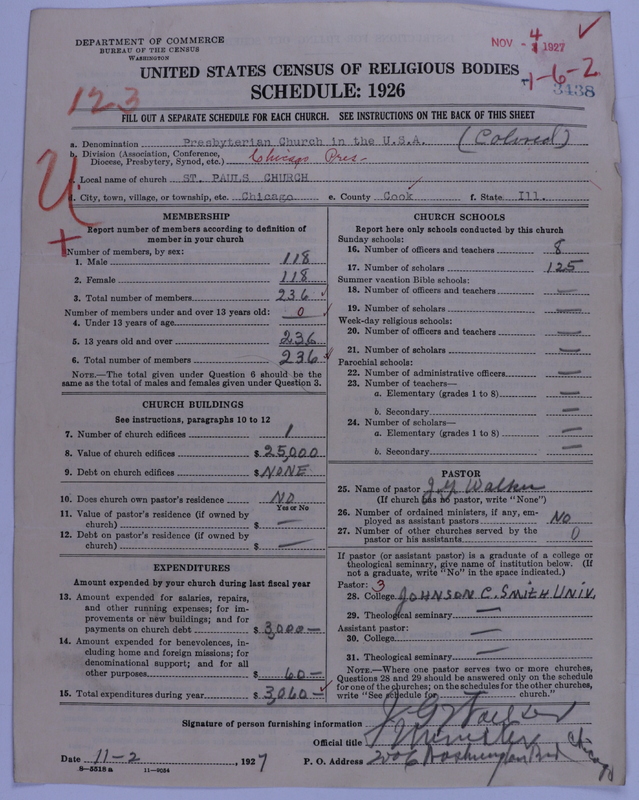 DEPARTMENT OF COMMERCE
BUREAU OF THE CENSUS
WASHINGTON
NOV - 4 1927
UNITED STATES CENSUS OF RELIGIOUS BODIES
1-6-2
SCHEDULE: 1926
3438
123
FILL OUT A SEPARATE SCHEDULE FOR EACH CHURCH. SEE INSTRUCTIONS ON THE BACK OF THIS SHEET
a. Denomination Presbyterian Church in the U.S.A. (Colored)
b. Division (Association, Conference, Diocese, Presbytery, Synod, etc.) Chicago Pres-
c. Local name of church ST. PAULS CHURCH
d. City, town, village, or township, etc. Chicago e. County Cook f. State Ill.
MEMBERSHIP
Report number of members according to definition of
member in your church
Number of members, by sex:
1. Male 118
2. Female 118
3. Total number of members 236
Number of members under and over 13 years old:
4. Under 13 years of age 0
5. 13 years old and over 236
6. Total number of members 236
NOTE.—The total given under Question 6 should be the
same as the total of males and females given under Question 3.
CHURCH BUILDINGS
See instructions, paragraphs 10 to 12
7. Number of church edifices 1
8. Value of church edifices $ 25,000
9. Debt on church edifices $ NONE
10. Does church own pastor's residence NO
Yes or No
11. Value of pastor's residence (if owned by
church) $ —
12. Debt on pastor's residence (if owned by
church) $ —
EXPENDITURES
Amount expended by your church during last fiscal year
13. Amount expended for salaries, repairs,
and other running expenses; for im-
provements or new buildings; and for
payments on church debt $ 3,000—
14. Amount expended for benevolences, in-
cluding home and foreign missions; for
denominational support; and for all
other purposes $ 60—
15. Total expenditures during year $ 3,060—
CHURCH SCHOOLS
Report here only schools conducted by this church
Sunday schools:
16. Number of officers and teachers 8
17. Number of scholars 125
Summer vacation Bible schools:
18. Number of officers and teachers —
19. Number of scholars —
Week-day religious schools:
20. Number of officers and teachers —
21. Number of scholars —
Parochial schools:
22. Number of administrative officers —
23. Number of teachers—
a. Elementary (grades 1 to 8) —
b. Secondary —
24. Number of scholars—
a. Elementary (grades 1 to 8) —
b. Secondary —
PASTOR
25. Name of pastor J. G. Walker
(If church has no pastor, write "None")
26. Number of ordained ministers, if any, em-
ployed as assistant pastors NO
27. Number of other churches served by the
pastor or his assistants 0
If pastor (or assistant pastor) is a graduate of a college or
theological seminary, give name of institution below. (If
not a graduate, write "No" in the space indicated.)
Pastor: 3
28. College JOHNSON C. SMITH UNIV.
29. Theological seminary —
Assistant pastor:
30. College —
31. Theological seminary —
NOTE.—Where one pastor serves two or more churches,
Questions 28 and 29 should be answered only on the schedule
for one of the churches; on the schedules for the other churches,
write "See schedule for church."
Signature of person furnishing information J. G. Walker
Official title Minister
Date 11-2, 1927 P. O. Address 2006 Washington Blvd Chicago
8—5518a 11—9054